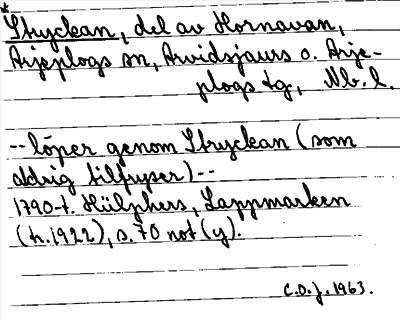 *
Stryckan, del av Hornavan,
Arjeplogs sn, Arvidsjaurs o. Arje-
plogs tg, Nb. l.
-- löper genom Stryckan (som
aldrig tilfryser) --
1790-t. Hülphers, Lappmarken
(tr. 1922), s. 70 not (y).
C.O.J. 1963.